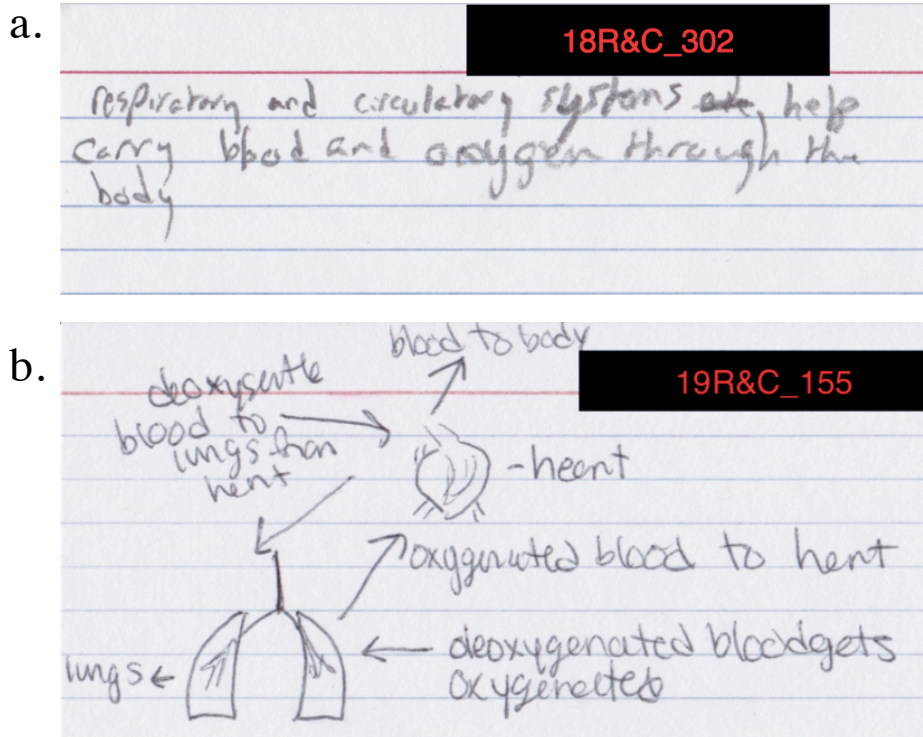 a.
18R&C_302
respiratory and circulatory systems help
carry blood and oxygen through the
body
b.
19R&C_155
blood to body
blood to
lungs from
hent
-heart
oxygenated blood to hent
deoxygenated blood gets
oxygenated
lungs